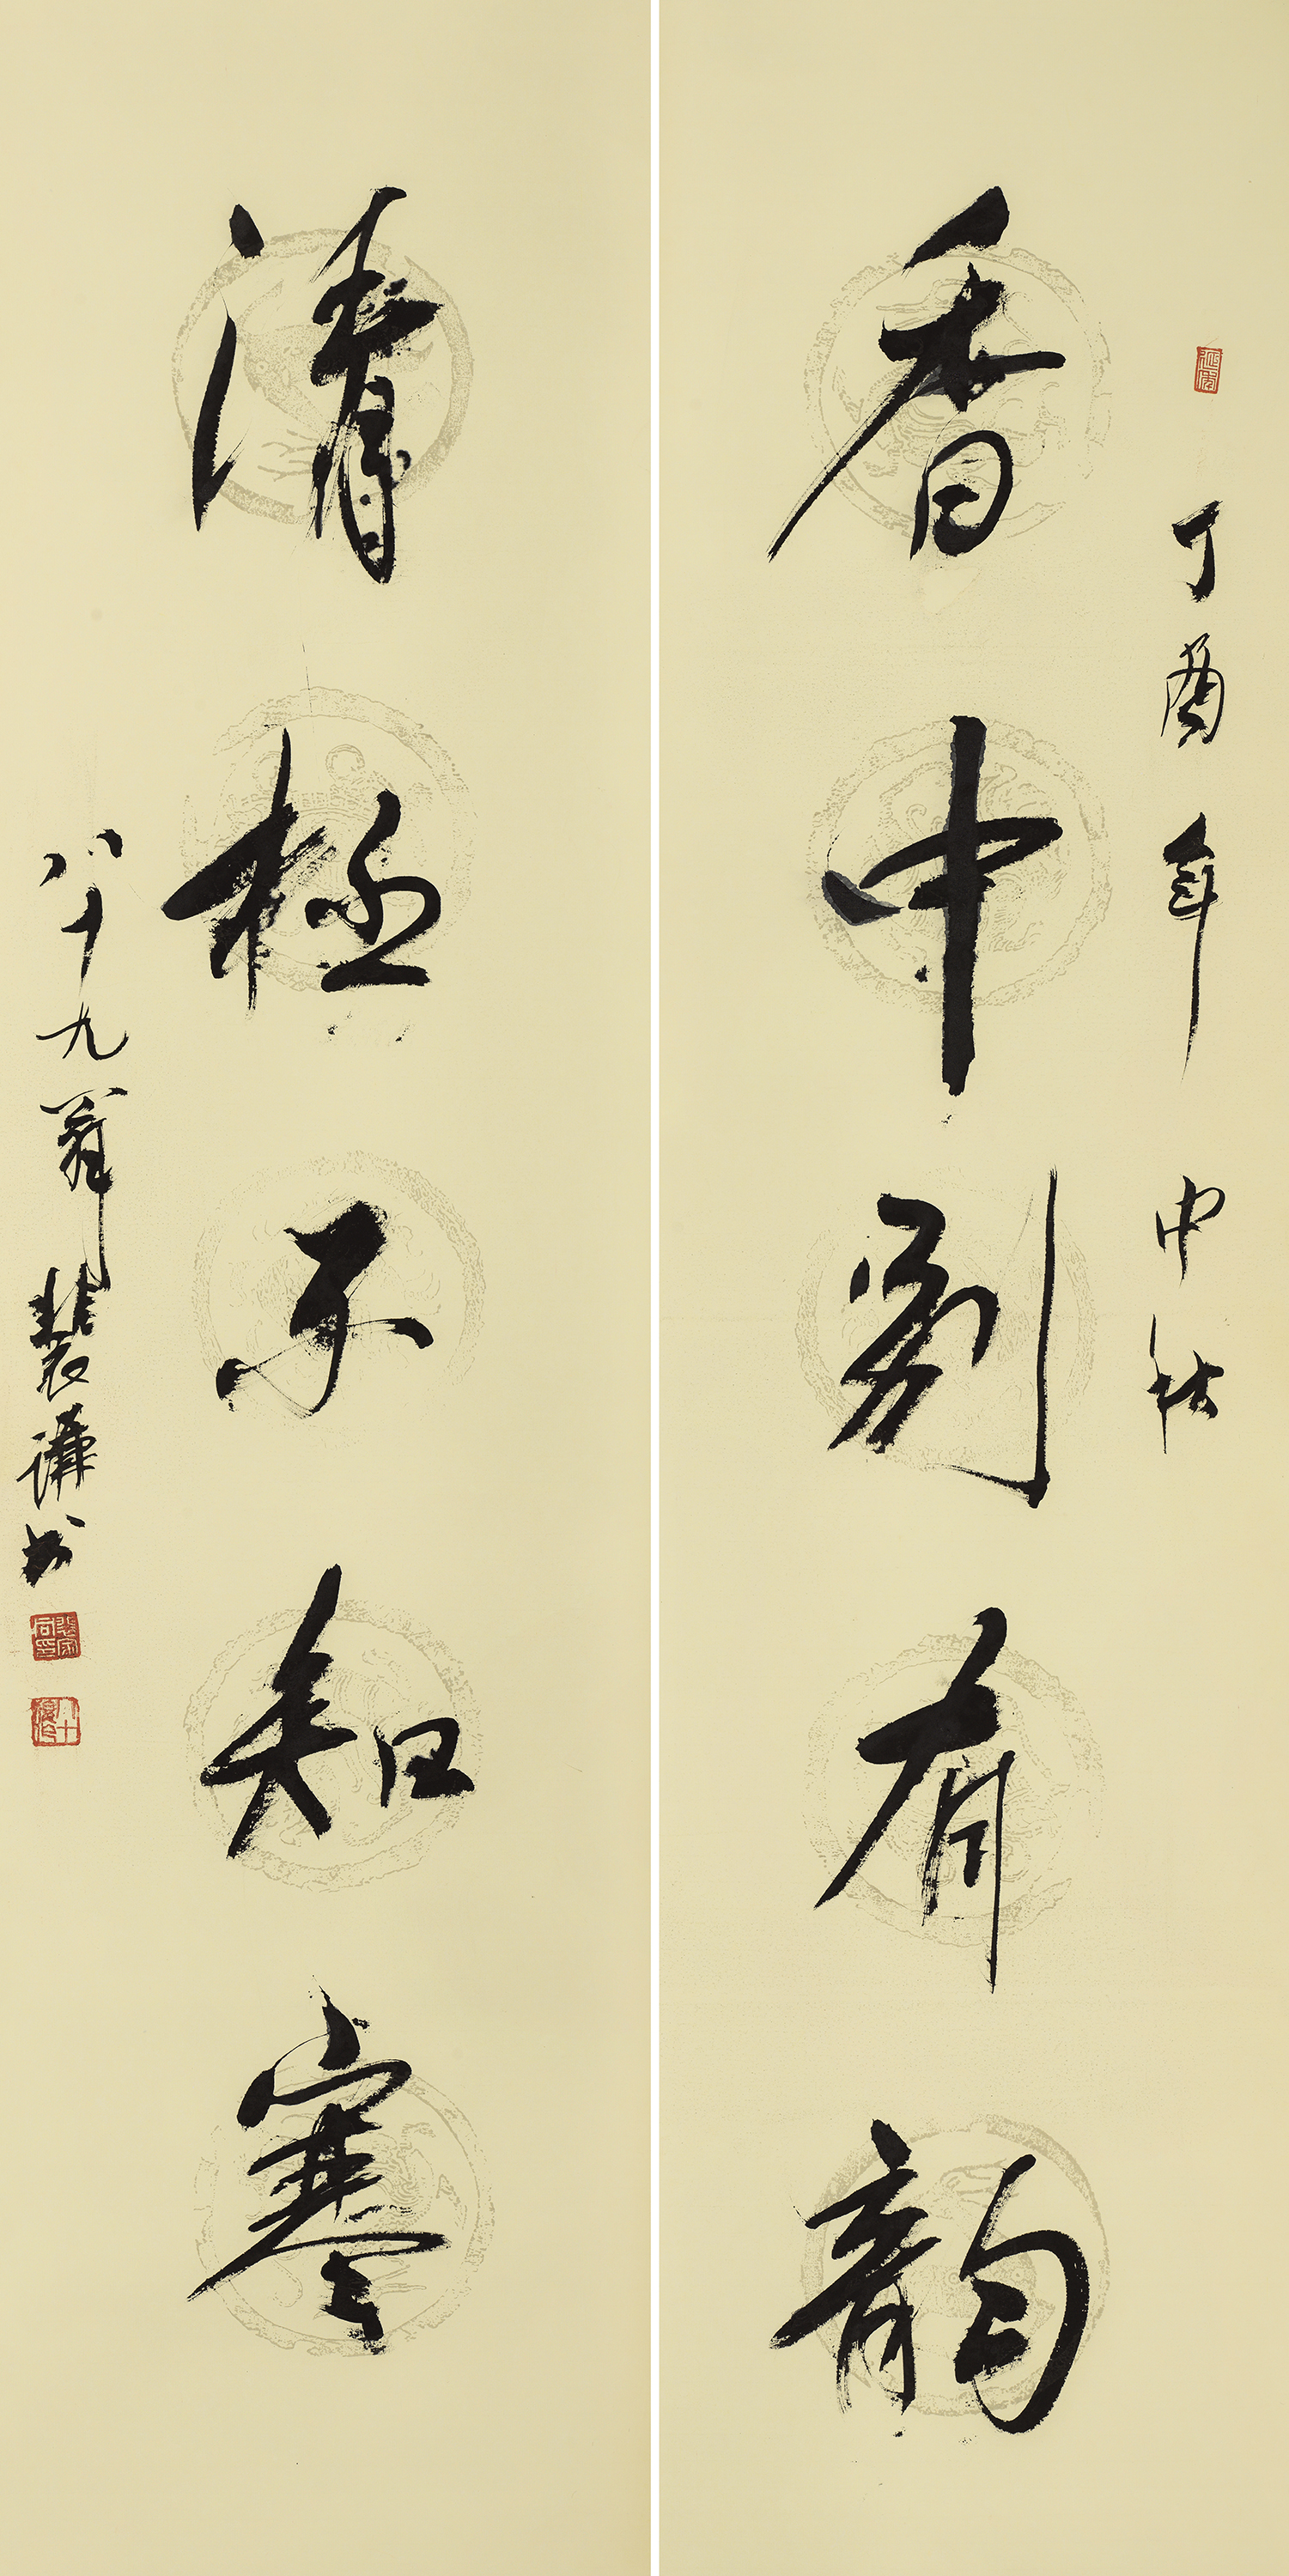 丁酉年中秋
香中别有韵
清极不知寒
八十九翁裴谦书